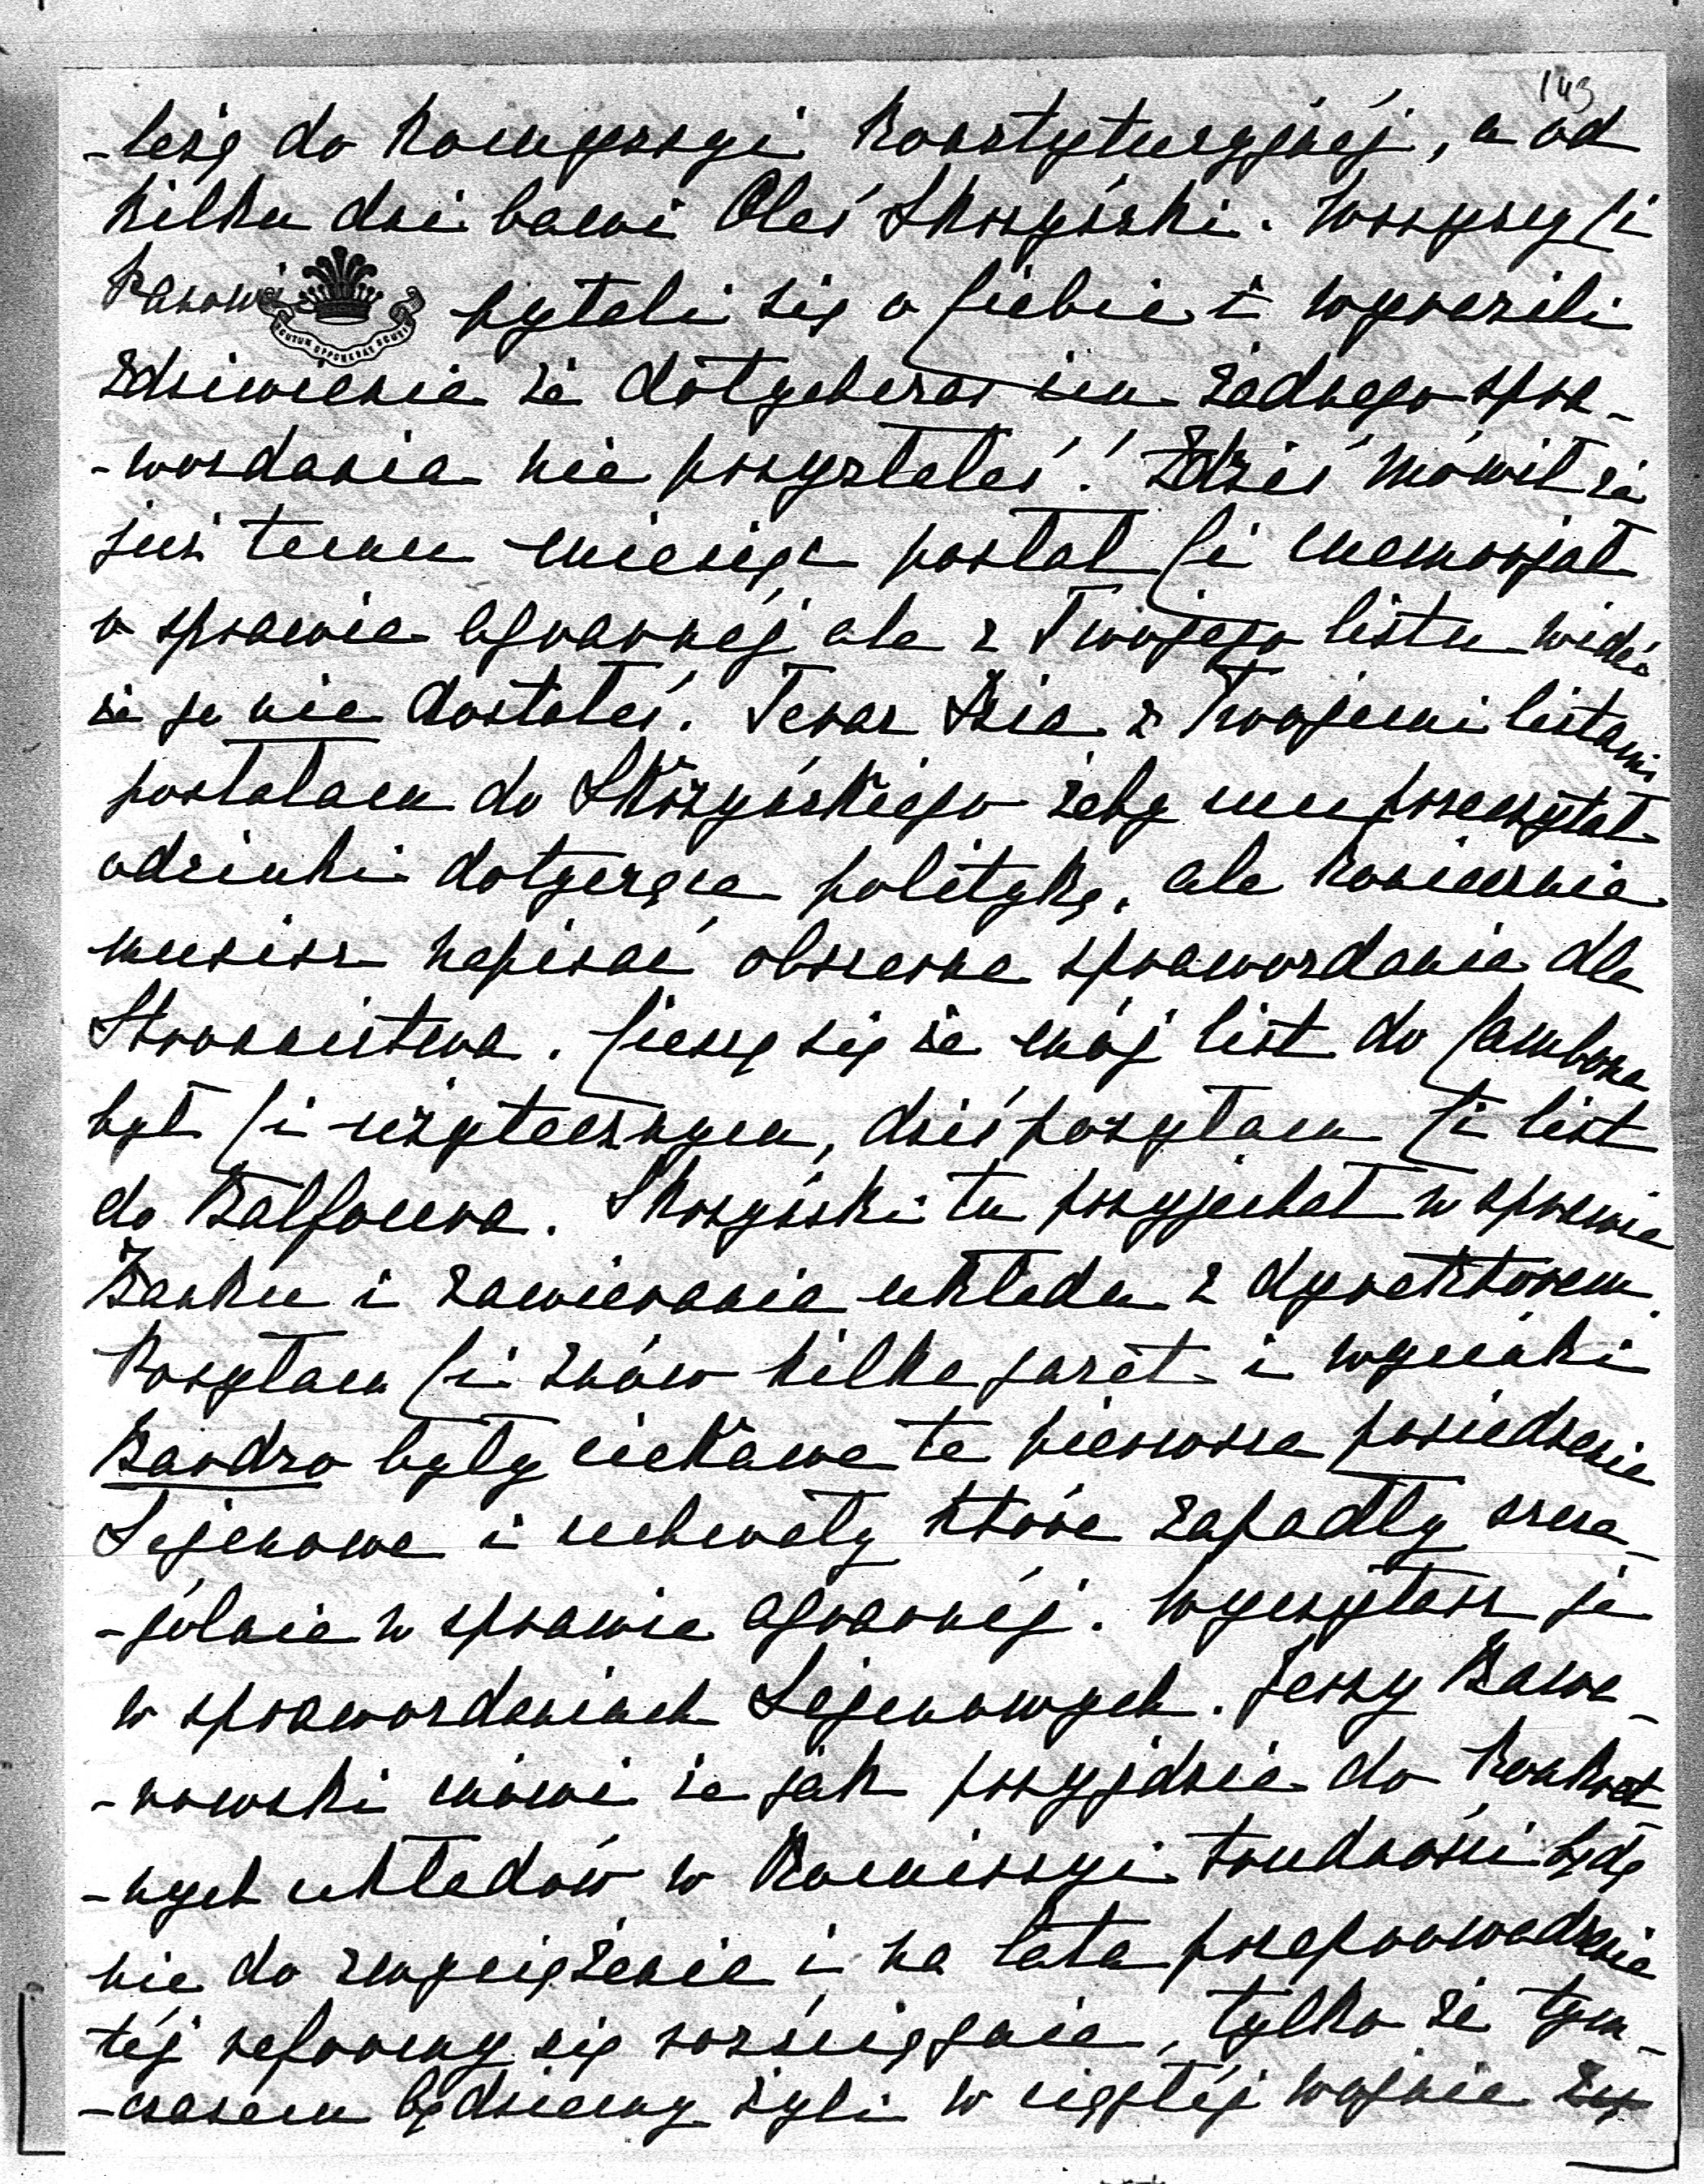 143
-leżę do Komyssyi Konstytucyjnéj, a od
kilku dni bawi Oleś Skrzyński. Wszyscy Ci
Panowie pytali się o Ciebie i wyrazili
SCUTUM OPPONEBAT SCUTIS
Zdziwienie że dotychczas im żadnego spra-
-wozdania nie przysłałeś! Zdziś mówił że
już temu miesiąc posłał Ci memorjał
w sprawie agrarnéj ale z Twojego listu widzę
że go nie dostałeś. Teraz Izia z Twojemi listami
posłałam do Skrzyńskiego żeby mu przeczytał
odcinki dotyczące politykę, ale koniecznie
musisz napisać obszerne sprawozdanie dla
Stronnictwa. Cieszę się że mój list do Cambona
był Ci użytecznym, dziś posyłam Ci list
do Balfoura. Skrzyński tu przyjechał w sprawie
Banku i zawierania układu z dyrektorem.
Posyłam Ci znów kilka gazet i wycinki
Bardzo były ciekawe te pierwsze posiedzenia
Sejmowe i uchwały które zapadły szcze-
-gólnie w sprawie agrarnéj. Wyczytasz je
w sprawozdaniach Sejmowych. Jerzy Bawo-
-rowski mówi że jak przyjdzie do konkret-
-nych układów w Komissyi trudności będą
nie do zwyciężenia i na lata przeprowadzenie
téj reformy się rozciągnie, tylko że tym-
-czasem będziemy żyli w ciągłéj wojnie